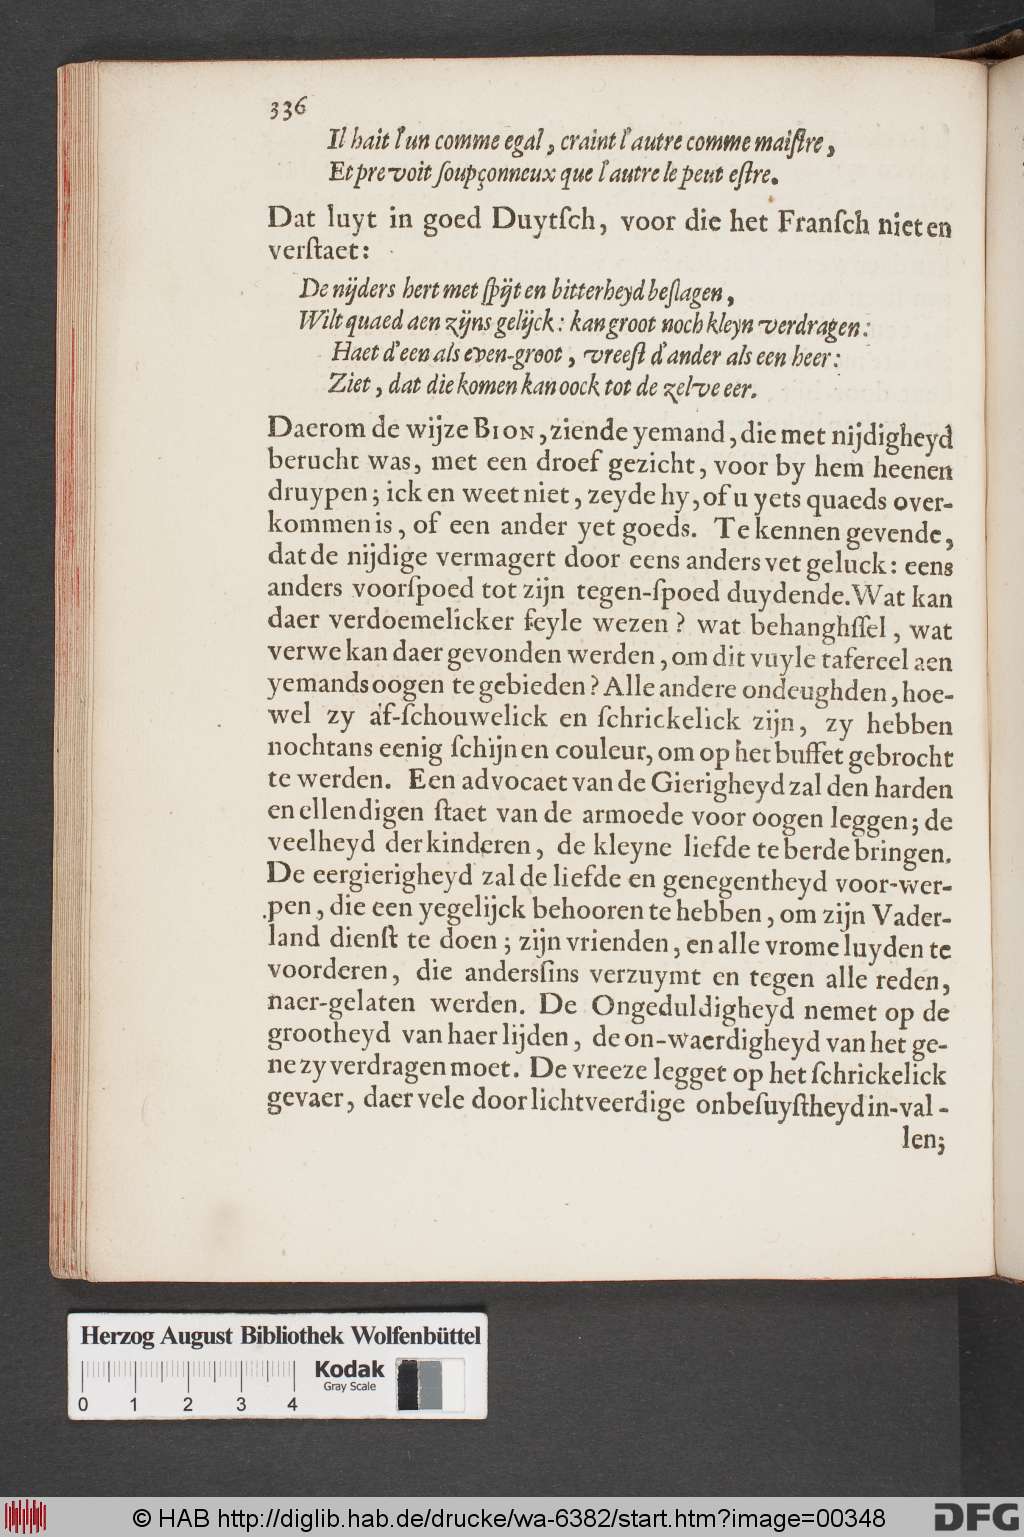 336
Il hait l'un comme egal, craint l'autre comme maiſtre,
Et prevoit ſoupçonneux que l'autre le peut eſtre.
Dat luyt in goed Duytſch, voor die het Franſch niet en
verſtaet:
De nijders hert met ſpijt en bitterheyd beſlagen,
Wilt quaed aen zijns gelijck: kan groot noch kleyn verdragen:
Haet d'een als even-groot, vreeſt d'ander als een heer:
Ziet, dat die komen kan oock tot de zelve eer.
Daerom de wijze BION, ziende yemand, die met nijdigheyd
berucht was, met een droef gezicht, voor by hem heenen
druypen; ick en weet niet, zeyde hy, of u yets quaeds over-
kommen is, of een ander yet goeds. Te kennen gevende,
dat de nijdige vermagert door eens anders vet geluck: eens
anders voorſpoed tot zijn tegen-ſpoed duydende. Wat kan
daer verdoemelicker feyle wezen? wat behanghſſel, wat
verwe kan daer gevonden werden, om dit vuyle tafereel aen
yemands oogen te gebieden? Alle andere ondeughden, hoe-
wel zy af-ſchouwelick en ſchrickelick zijn, zy hebben
nochtans eenig ſchijn en couleur, om op het buffet gebrocht
te werden. Een advocaet van de Gierigheyd zal den harden
en ellendigen ſtaet van de armoede voor oogen leggen; de
veelheyd der kinderen, de kleyne liefde te berde bringen.
De eergierigheyd zal de liefde en genegentheyd voor-wer-
pen, die een yegelijck behooren te hebben, om zijn Vader-
land dienſt te doen; zijn vrienden, en alle vrome luyden te
voorderen, die andersſins verzuymt en tegen alle reden,
naer-gelaten werden. De Ongeduldigheyd nemet op de
grootheyd van haer lijden, de on-waerdigheyd van het ge-
ne zy verdragen moet. De vreeze legget op het ſchrickelick
gevaer, daer vele door lichtveerdige onbeſuyſtheyd in-val-
len;
Herzog August Bibliothek Wolfenbüttel
Kodak
Gray Scale
0 1 2 3 4
© HAB http://diglib.hab.de/drucke/wa-6382/start.htm?image=00348
DFG